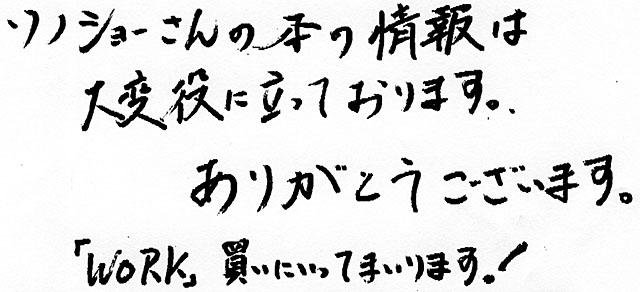 ソノショーさんの本の情報は
大変役に立っております。
ありがとうございます。
「WORK」買いにいってまいります。!